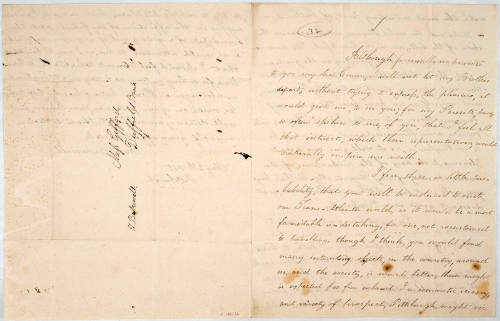 32
Although personally unknown
to you my dear Cousin, I will not let my Brother
depart, without trying to express, the pleasure, it
would give me, to see you; for my Parents, have
so often spoken to me of you, that I feel all
that interest, which their representations would
naturally inspire one with.
I fear, there is little pro-
bability, that you will be induced to visit
our Trans-Atlantic world, as it would be a most
formidable undertaking, for one, not accustomed
to travelling, though I think, you would find
many interesting objects in the country, around
us, and the society, is much better, than might
be expected so far inland. In romantic scenery,
and variety of prospect, Pittsburgh might vie
Miss Gifford
Duffield Bank